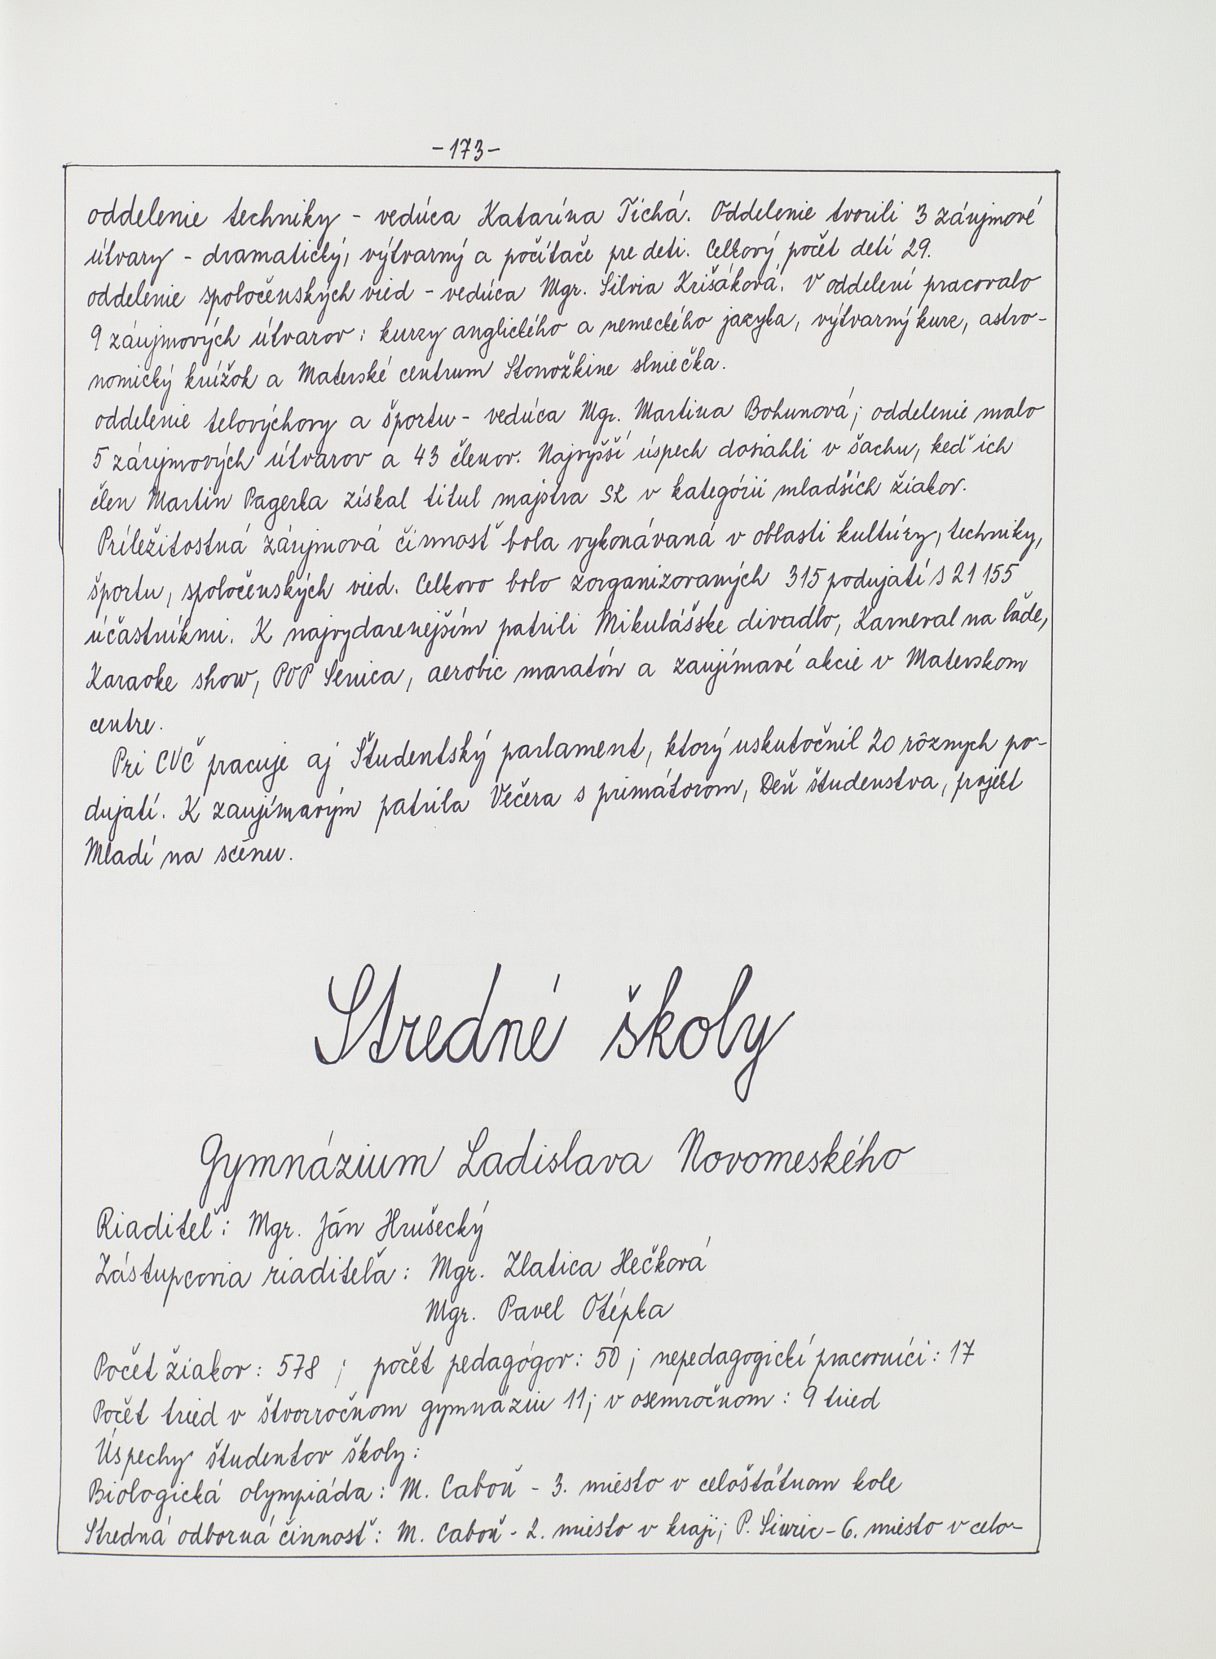 -173-
oddelenie techniky - vedúca Katarína Tichá. Oddelenie tvorili 3 záujmové
útvary - dramatický, výtvarný a počítače pre deti. Celkový počet detí 29.
oddelenie spoločenských vied - vedúca Mgr. Silvia Krišáková. V oddelení pracovalo
9 záujmových útvarov: kurzy anglického a nemeckého jazyka, výtvarný kurz, astro-
nomický krúžok a Materské centrum Stonožkine slniečka.
oddelenie telovýchovy a športu - vedúca Mgr. Martina Bohunová; oddelenie malo
5 záujmových útvarov a 43 členov. Najvyšší úspech dosiahli v šachu, keď ich
člen Martin Pagerka získal titul majstra SR v kategórii mladších žiakov.
Príležitostná záujmová činnosť bola vykonávaná v oblasti kultúry, techniky,
športu, spoločenských vied. Celkovo bolo zorganizovaných 315 podujatí s 21 155
účastníkmi. K najvydarenejším patrili Mikulášske divadlo, Karneval na ľade,
Karaoke show, POP Senica, aerobic maratón a zaujímavé akcie v Materskom
centre.
Pri CVČ pracuje aj Študentský parlament, ktorý uskutočnil 20 rôznych po-
dujatí. K zaujímavým patrila Večera s primátorom, Deň študenstva, projekt
Mladí na scénu.
Stredné školy
Gymnázium Ladislava Novomeského
Riaditeľ: Mgr. Ján Hrušecký
Zástupcovia riaditeľa: Mgr. Zlatica Hečková
Mgr. Pavel Otépka
Počet žiakov: 578 ; počet pedagógov: 50 ; nepedagogickí pracovníci: 17
Počet tried v štvorročnom gymnáziu 11; v osemročnom: 9 tried
Úspechy študentov školy:
Biologická olympiáda: M. Caboň - 3. miesto v celoštátnom kole
Stredná odborná činnosť: M. Caboň - 2. miesto v kraji; P. - 6. miesto v celo-